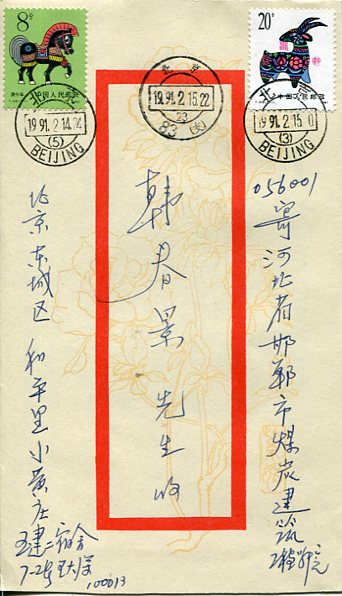 8分
庚午年
中国人民邮政
20分
中国人民邮政
北京
1991.2.14.24
(5)
BEIJING
北京
1991.2.15.22
23
83(支)
北京
1991.2.15.0
(3)
BEIJING
056001
寄河北省邯郸市煤炭建筑
工程学院
韩春景先生收
北京东城区和平里小黄庄
宿舍
100013